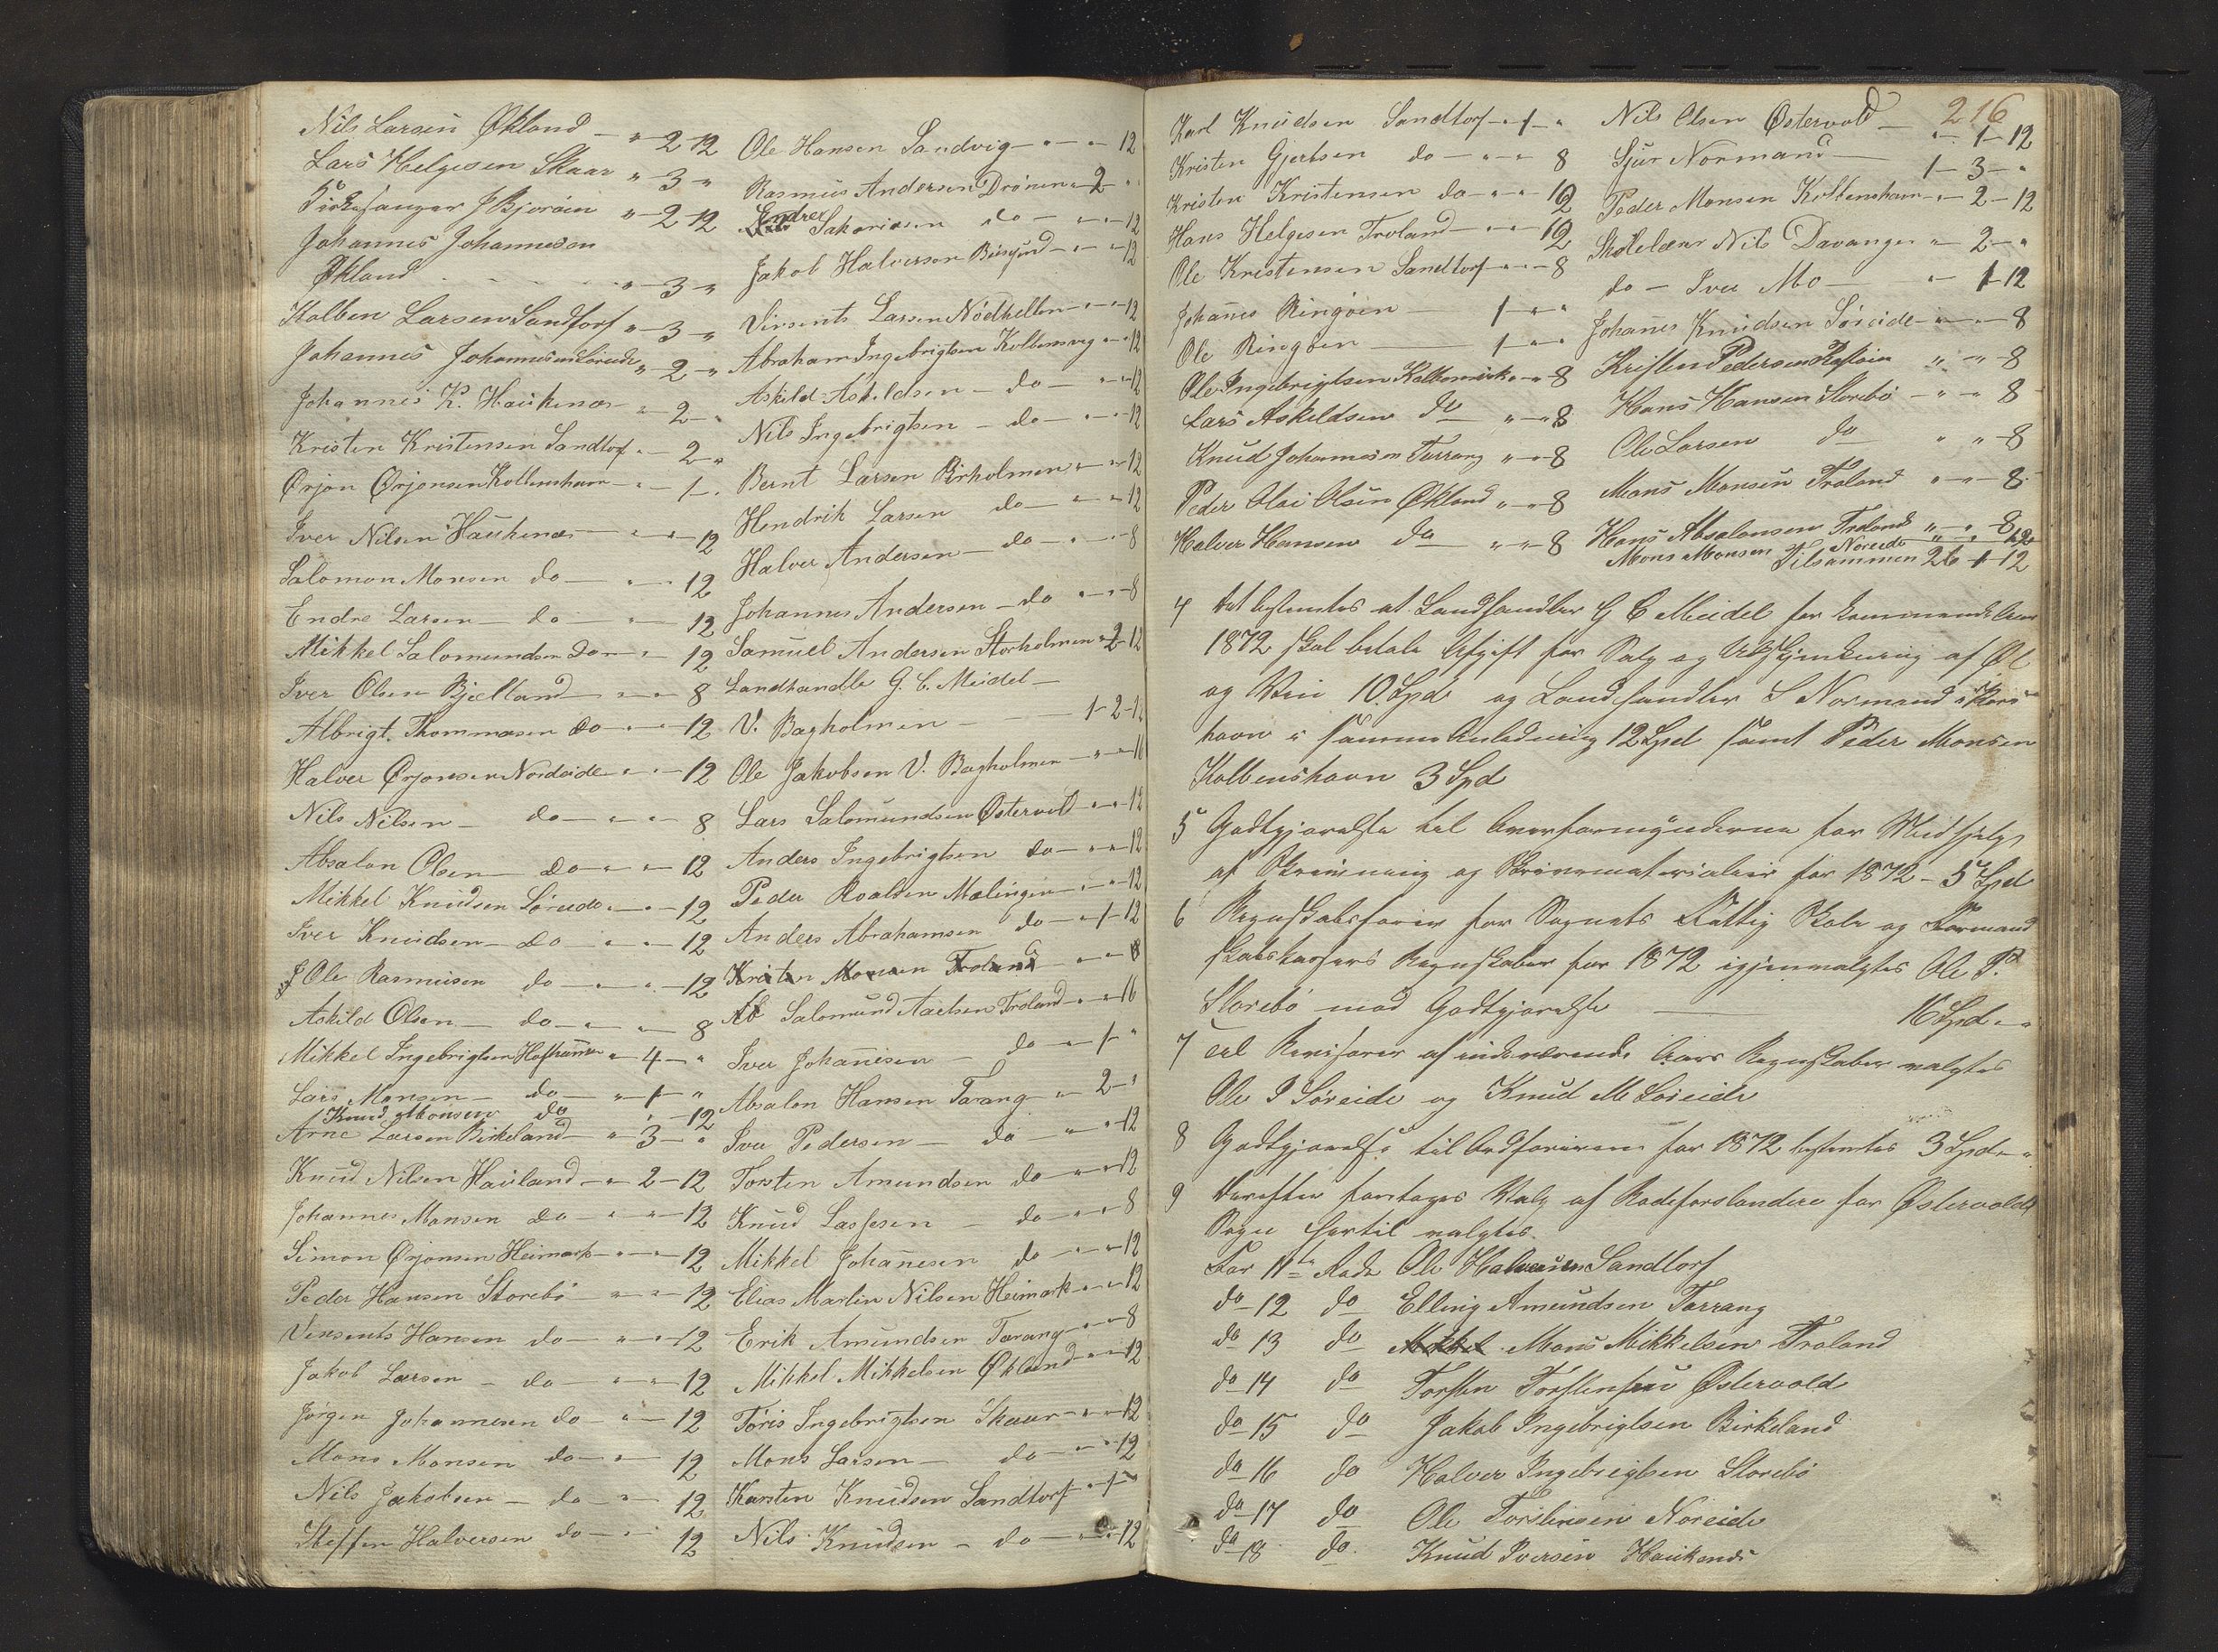 Nils Larsen Økland - " - 2 - 12
Lars Helgesen Skaar " - 3 - "
Kirkesanger J Bjoröen " - 2 - 12
Johannes Johannesen
Økland - - - " - 3 - "
Kolben Larsen Sandtorf " - 3 - "
Johannes Johannesen " - 2 - "
Johannes K. Haukenæs " - 2 - "
Kristen Kristensen Sandtorf " - 2 - "
Ørjan Ørjansen Kolbenshavn - " - 1 - "
Iver Nilsen Haukenæs - " - " - 12
Salomon Monsen do - " - 12
Endre Larsen - do - " - 12
Mikkel Salomundsen do - " - 12
Iver Olsen Bjelland - " - " 8
Albrigt Thommasen do - " - " - 12
Halver Ørjansen Nordeide " - " - 12
Nils Nilsen - do - " - " 8
Absalon Olsen - do - " - " 12
Mikkel Knudsen Søreide " - " - 12
Iver Knudsen - do - " - " 12
Ole Rasmusen do - " - " - 12
Askild Olsen - do - " - 8
Mikkel Ingebrigtsen " - 4 - "
Lars Monsen - do - " - 1 - "
Knud Monsen do " - 12
Arne Larsen Birkeland - " 3 - "
Knud Nilsen Hauland - " - 2 - 12
Johannes Monsen do - " - " - 12
Simon Ørjansen Heimark - " - " - 12
Peder Hansen Storebö - " - " - 12
Vinsents Hansen do - " - " - 12
Jakob Larsen - do - " - " - 12
Jørgen Johannesen do - " - 12
Mons Monsen do - " - 12
Nils Jakobsen - do - " - 12
Steffen Halversen do - " - 12
Ole Hansen Sandvig - " - " - 12
Rasmus Andersen Drönen " - 2 - "
Endre Sakariasen do - " - " - 12
Jakob Halversen - " - " - 12
Vinsents Larsen Nödhellen - " - " - 12
Abraham Ingebrigtsen Kolbensvig " - " - 12
Askild Askildsen - do - " - " - 12
Nils Ingebrigtsen - do - " - " - 12
Bernt Larsen Birholmen " - " - 12
Hendrik Larsen do - " - " 12
Halver Andersen - do - " - " - 8
Johannes Andersen - do " - " - 8
Samuel Andersen Storholmen " - 2 - 12
Landhandle G. C. Meidel -
V. Bagholmen - - 1 - 2 - 12
Ole Jakobsen V. Bagholmen - " - " - 16
Lars Salomundsen Østervold " - " - 12
Anders Ingebrigtsen do - " - " 12
Peder Roaldsen Mælingen - " - " - 12
Anders Abrahamsen do - " 1 - 12
Kristen Monsen Troland - " - " 8
Salomund Troland - " - " 16
Iver Johannesen - do - " - 1 - "
Absalon Hansen Tarang - " - 2 - "
Iver Pedersen - do - " - " - 12
Torsten Amundsen do - " - " 12
Knud Lassesen - do - " - " 8
Mikkel Johannesen do - " - " - 12
Elias Martin Nilsen Heimark " - " - 12
Erik Amundsen Tarang - " - " - 8
Mikkel Mikkelsen Økland - " - " - 12
Töris Ingebrigtsen Skaar - " - " - 12
Mons Larsen - do - " - " - 12
Karsten Knudsen Sandtorf - " - 1 - "
Nils Knudsen - do - " - " - 12
216
Karl Knudsen Sandtorf - " - 1 - "
Kristen Gjertsen do - " - " 8
Kristen Kristensen do - " - " 12
Hans Helgesen Troland - " - " - 12
Ole Kristensen Sandtorf - " - " - 8
Johanes Ringöen - 1 - " - "
Ole Ringöen - 1 - " - "
Ole Ingebrigtsen " - " - 8
Lars Askeldsen do " - " 8
Knud Johannesen Tarrang " - " - 8
Peder Olai Olsen Økland " - " - 8
Halver Hansen do " - " - 8
Nils Olsen Østervold - " - 1 - 12
Sjur Normand - 1 - 3 - "
Peder Monsen Kolbenshavn - " - 2 - 12
Skolelærer Nils Davanger " - 2 - "
do - Iver Mo - " - 1 - 12
Johanes Knudsen Söreide - " - " - 8
Kristen Pedersen " - " - 8
Hans Hansen Storebö - " - " 8
Ole Larsen do " - " - 8
Mons Monsen Troland " - " - 8
Hans Absalonsen Troland " - " - 8
Mons Monsen Noreide " - " 12
Tilsammen 26 - 1 - 12
4 Det bestemtes at Landhandler G C Meidel for kommende Aar
1872 skal betale Afgift for Salg og Udskjenkning af Øl
og Vin 10 Spd og Landhandler S Normand i
havn i samme Anledning 12 Spd samt Peder Monsen
Kolbenshavn 3 Spd
5 Godtgjørelse til Overformynderne for Medhjælp
af Skrivning og Skrivematerialier for 1872 - 5 Spd
6 Regnskabsfører for Sognets Fattig Skole og Formand
skabskassers Regnskaber for 1872 igjenvalgtes Ole P.
Storebö mod Godtgjørelse - 16 Spd " "
7 Til Revisorer af indeværende Aars Regnskaber valgtes
Ole I Söreide og Knud M Söreide
8 Godtgjørelse til Ordføreren for 1872 bestemtes 3 Spd " "
9 Derefter foretoges Valg af Rodeforstandere for Østervolds
Sogn hertil valgtes.
For 11te Rode Ole Halversen Sandtorf
do 12 do Elling Amundsen Tarrang
do 13 do Mikkel Mons Mikkelsen Troland
do 14 do Torsten Torstensen Østervold
do 15 do Jakob Ingebrigtsen Birkeland
do 16 do Halver Ingebrigtsen Storebö
do 17 do Ole Torstensen Noreide
do 18 do Knud Iversen Haukenæs